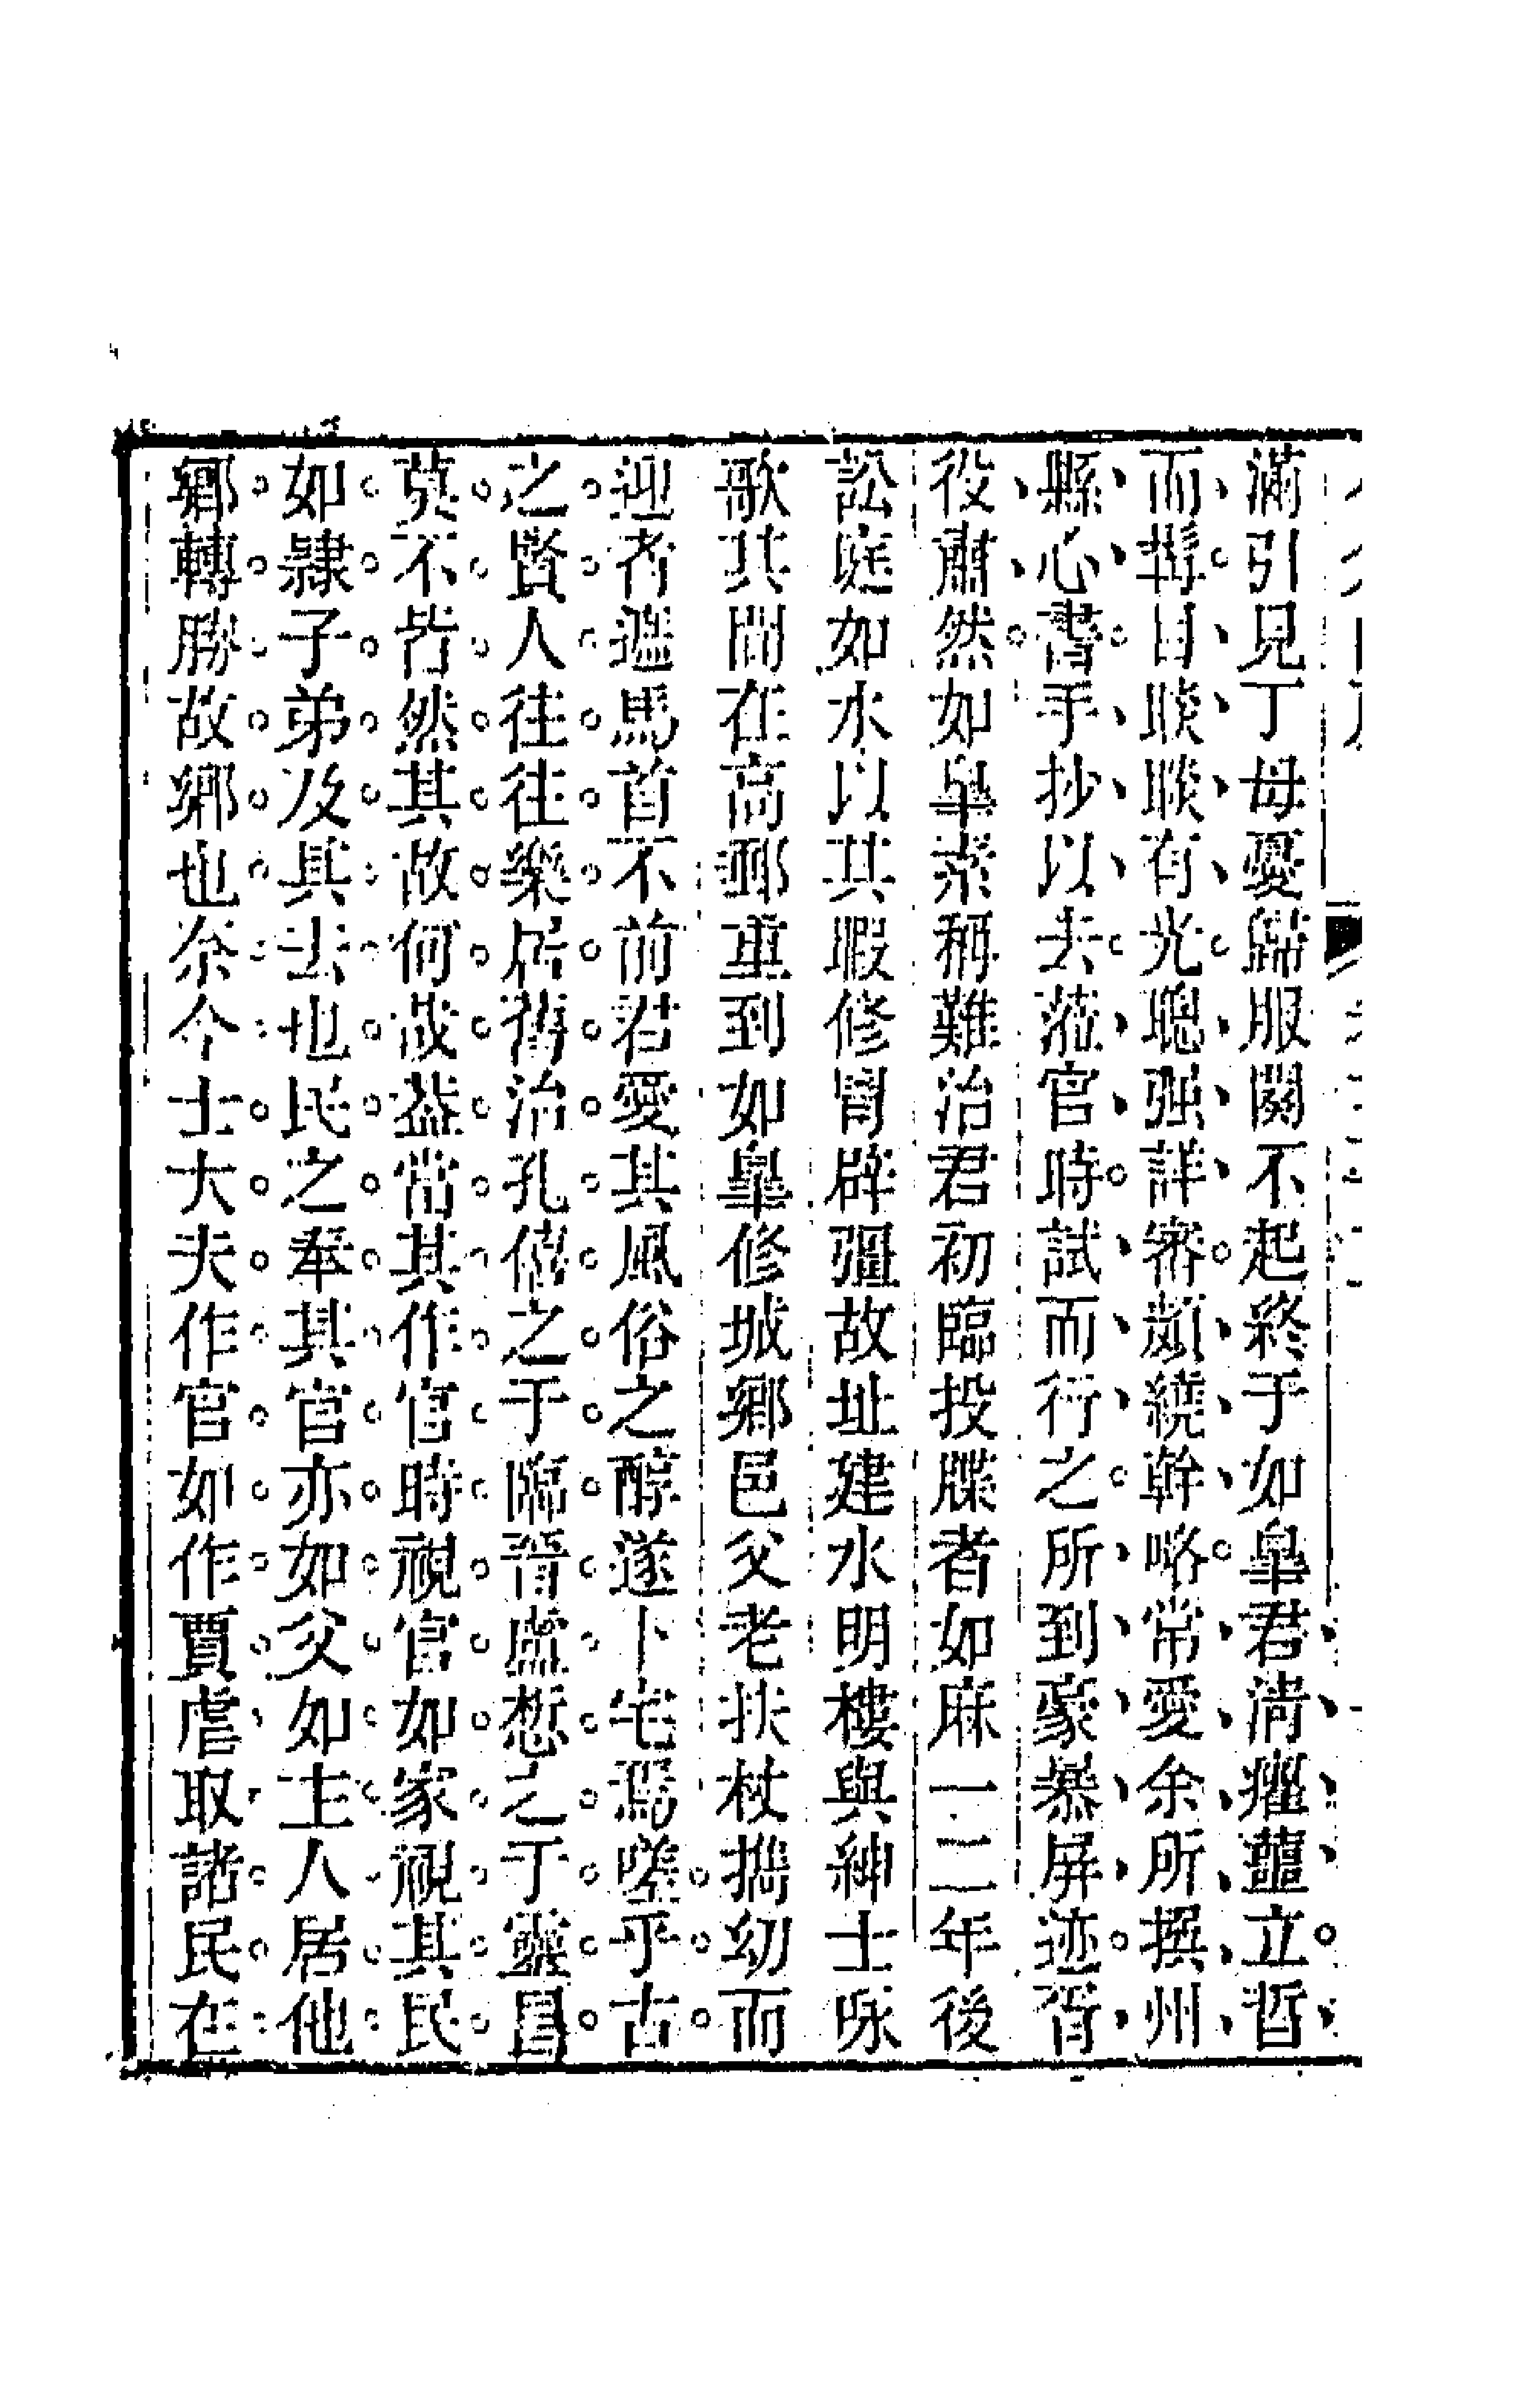 滿引見丁母憂歸服闋不起終于如臯君淸癯虀立晳
而髯目睒睒有光聰强詳審頗繞幹略常愛余所撰州
縣心書手抄以去蒞官時試而行之所到豪暴屏迹胥
役肅然如臯素稱難治君初臨投牒者如麻一二年後
訟庭如水以其暇修胥辟疆故址建水明樓與紳士咏
歌其間在高郵重到如臯修城鄉邑父老扶杖擕幼而
迎者遮馬首不前君愛其風俗之醇遂卜宅焉嗟乎古
之賢人往往樂居舊治孔僖之于臨晉盧慙之于靈昌
莫不皆然其故何哉葢當其作官時視官如家視其民
如隸子弟及其去也民之奉其官亦如父如主人居他
鄉轉勝故鄉也奈今士大夫作官如作賈虐取諸民在